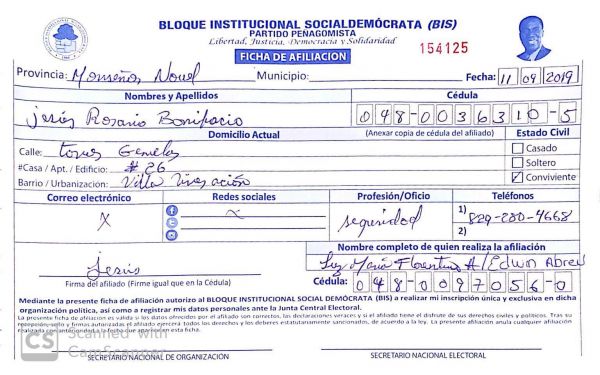 BLOQUE INSTITUCIONAL SOCIALDEMÓCRATA (BIS)
PARTIDO PENAGOMISTA
Libertad, Justicia, Democracia y Solidaridad
FICHA DE AFILIACION
154125
Provincia: Monseñor Nouel Municipio: Fecha: 11 09 2019
Nombres y Apellidos Cédula
Jesús Rosario Bonifacio 048-0036310-5
Domicilio Actual (Anexar copia de cédula del afiliado) Estado Civil
Calle: torres Gemelas Casado
#Casa / Apt. / Edificio: # 26 Soltero
Barrio / Urbanización: Villa Conviviente
Correo electrónico Redes sociales Profesión/Oficio Teléfonos
X X seguridad 1) 829-280-4668
2)
Nombre completo de quien realiza la afiliación
Jesús Luz María Florentino A/Edwin Abreu
Firma del afiliado (Firme igual que en la Cédula) Cédula: 048-0097056-0
Mediante la presente ficha de afiliación autorizo al BLOQUE INSTITUCIONAL SOCIAL DEMÓCRATA (BIS) a realizar mi inscripción única y exclusiva en dicha
organización política, así como a registrar mis datos personales ante la Junta Central Electoral.
La presente afiliación es valida si los datos ofrecidos por el afiliado son correctos, las declaraciones veraces y si el afiliado tiene el disfrute de sus derechos civiles y políticos. Tras su
recepción, sello y firmas autorizadas el afiliado ejercerá todos los derechos y los deberes estatutariamente sancionados, de acuerdo a la ley. La presente afiliación anula cualquier afiliación
realizada con anterioridad a la fecha que aparece en esta ficha.
CS Scanned with
CamScanner
SECRETARIO NACIONAL DE ORGANIZACIÓN SECRETARIO NACIONAL ELECTORAL